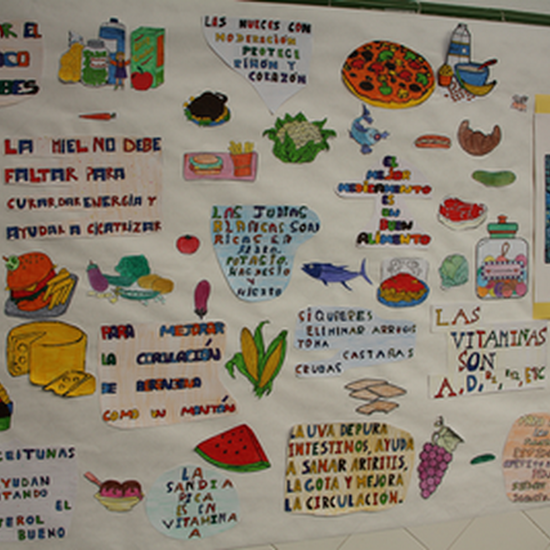 R EL
OCO
BES
LAS NUECES CON
MODERACIÓN
PROTEGE
RIÑÓN Y
CORAZÓN
LA MIEL NO DEBE
FALTAR PARA
CURAR, DAR ENERGÍA Y
AYUDAR A CICATRIZAR
EL
MEJOR
MEDICAMENTO
ES
UN
BUEN
ALIMENTO
LAS JUDIAS
BLANCAS SON
RICAS EN
FIBRA,
POTASIO,
MAGNESIO
Y
HIERRO
PARA MEJORAR
LA CIRCULACIÓN
DE BERENJENA
COME UN MONTÓN
SI QUIERES
ELIMINAR ARRUGAS
TOMA
CASTAÑAS
CRUDAS
LAS
VITAMINAS
SON
A, D, B2, B12, E, C
CEITUNAS
YUDAN
TANDO
EL
TEROL
BUENO
LA
SANDIA
RICA
ES EN
VITAMINA
A
LA UVA DEPURA
INTESTINOS, AYUDA
A SANAR ARTRITIS,
LA GOTA Y MEJORA
LA CIRCULACIÓN.